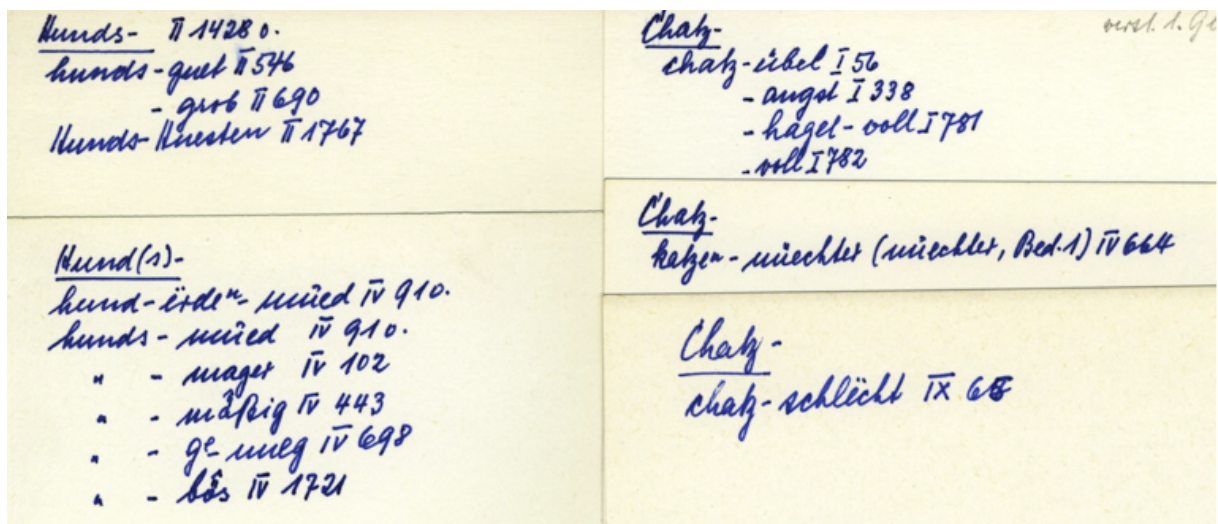 Hunds- II 1428 o.
hunds-guet II 546
- grob II 690
Hunds-Huesten II 1767
Hund(s)-
hund-ërdeⁿ-müed IV 910.
hunds-müed IV 910.
" - mager IV 102
" - mäßig IV 443
" - gᵉ-nueg IV 698
" - bös IV 1721
Chatz-
chatz-übel I 56
- angst I 338
- hagel-voll I 781
- voll I 782
Chatz-
katzeⁿ-nüechter (nüechter, Bed. 1) IV 664
Chatz-
chatz-schlëcht IX